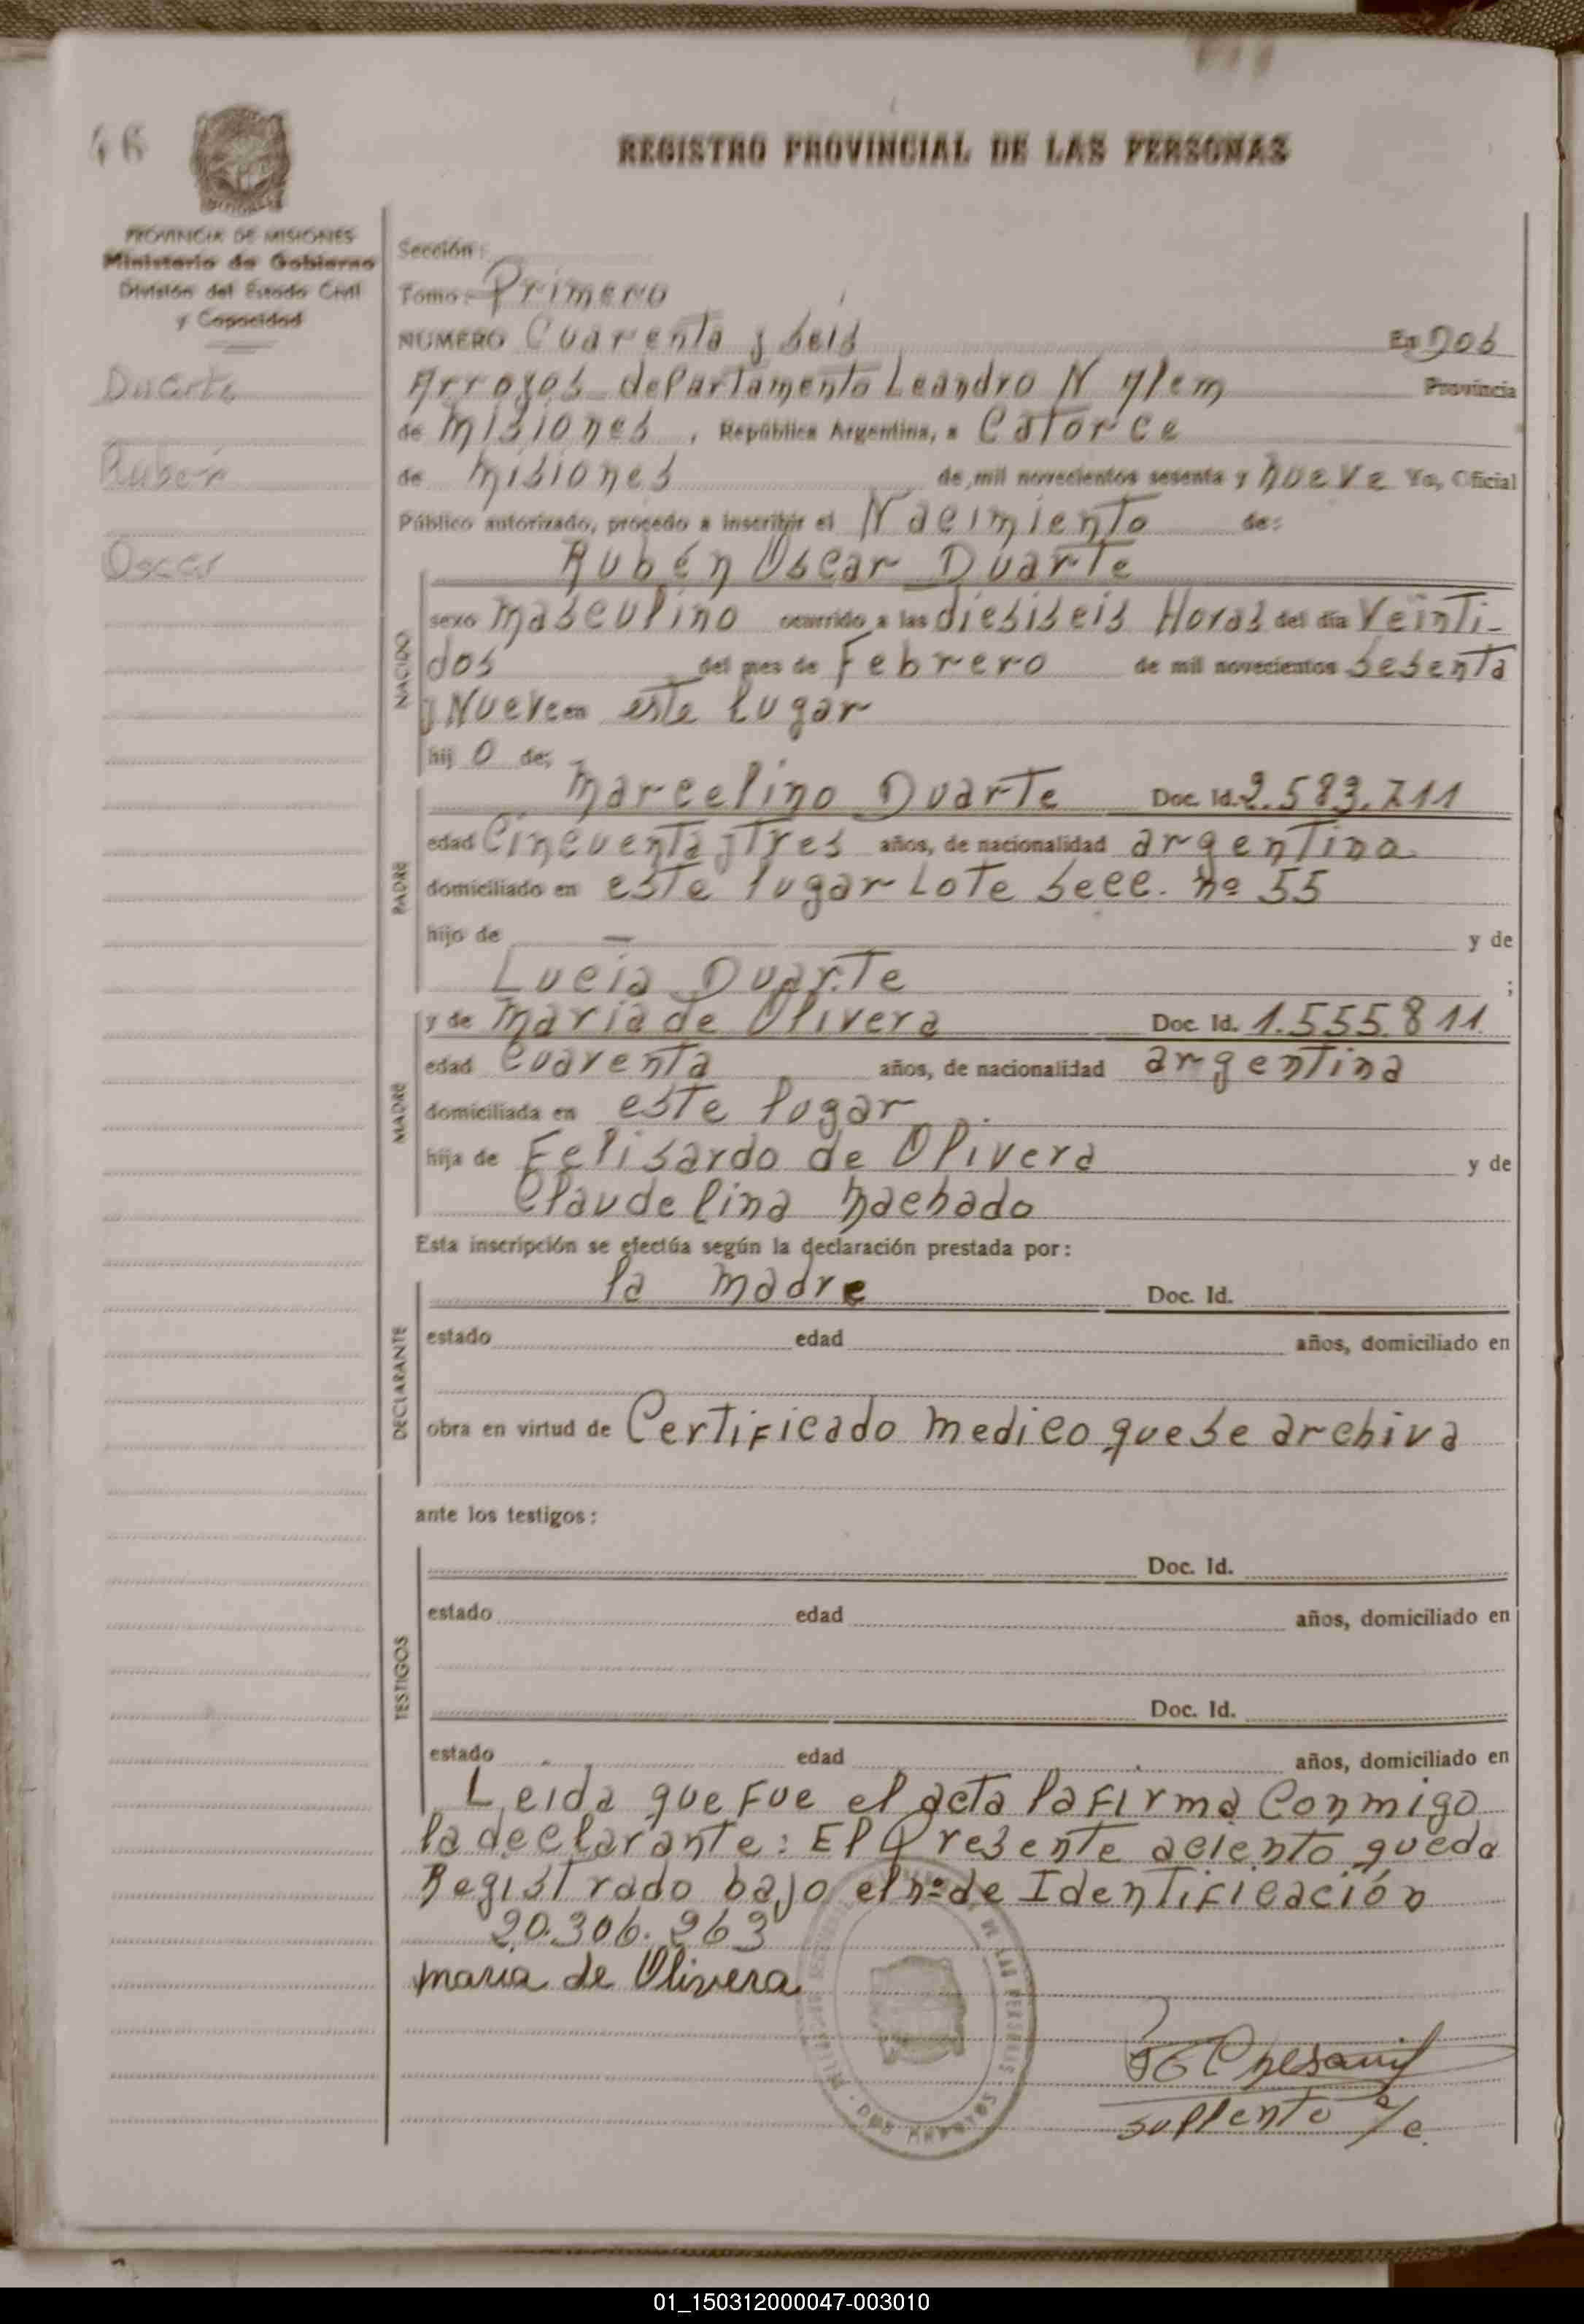 46
REGISTRO PROVINCIAL DE LAS PERSONAS
PROVINCIA DE MISIONES
Ministerio de Gobierno
División del Estado Civil
y Capacidad
Duarte
Rubén
Oscar
Sección:
Tomo: Primero
NÚMERO Cuarenta y seis En Dos
Arroyos departamento Leandro N Alem Provincia
de Misiones, República Argentina, a Catorce
de Misiones de mil novecientos sesenta y nueve Yo, Oficial
Público autorizado, procedo a inscribir el Nacimiento de:
Rubén Oscar Duarte
NACIDO
sexo masculino ocurrido a las diesiseis Horas del día Veinti-
dos del mes de Febrero de mil novecientos sesenta
y Nueve en este lugar
hij o de;
PADRE
Marcelino Duarte Doc. Id. 2.583.711
edad Cincuenta y Tres años, de nacionalidad argentino
domiciliado en este lugar Lote secc. nº 55
hijo de — y de
Lucia Duarte ;
MADRE
y de Maria de Olivera Doc. Id. 1.555.811
edad Cuarenta años, de nacionalidad argentina
domiciliada en este lugar
hija de Felisardo de Olivera y de
Claudelina Machado
Esta inscripción se efectúa según la declaración prestada por:
DECLARANTE
la madre Doc. Id.
estado edad años, domiciliado en
obra en virtud de Certificado medico que se archiva
ante los testigos:
TESTIGOS
Doc. Id.
estado edad años, domiciliado en
Doc. Id.
estado edad años, domiciliado en
Leida que fue el acta la firma Conmigo
la declarante: El Presente aciento queda
Registrado bajo el nº de Identificación
20.306.263
Maria de Olivera
DE LAS PERSONAS
DOS ARROYOS
suplente a/c.
01_150312000047-003010